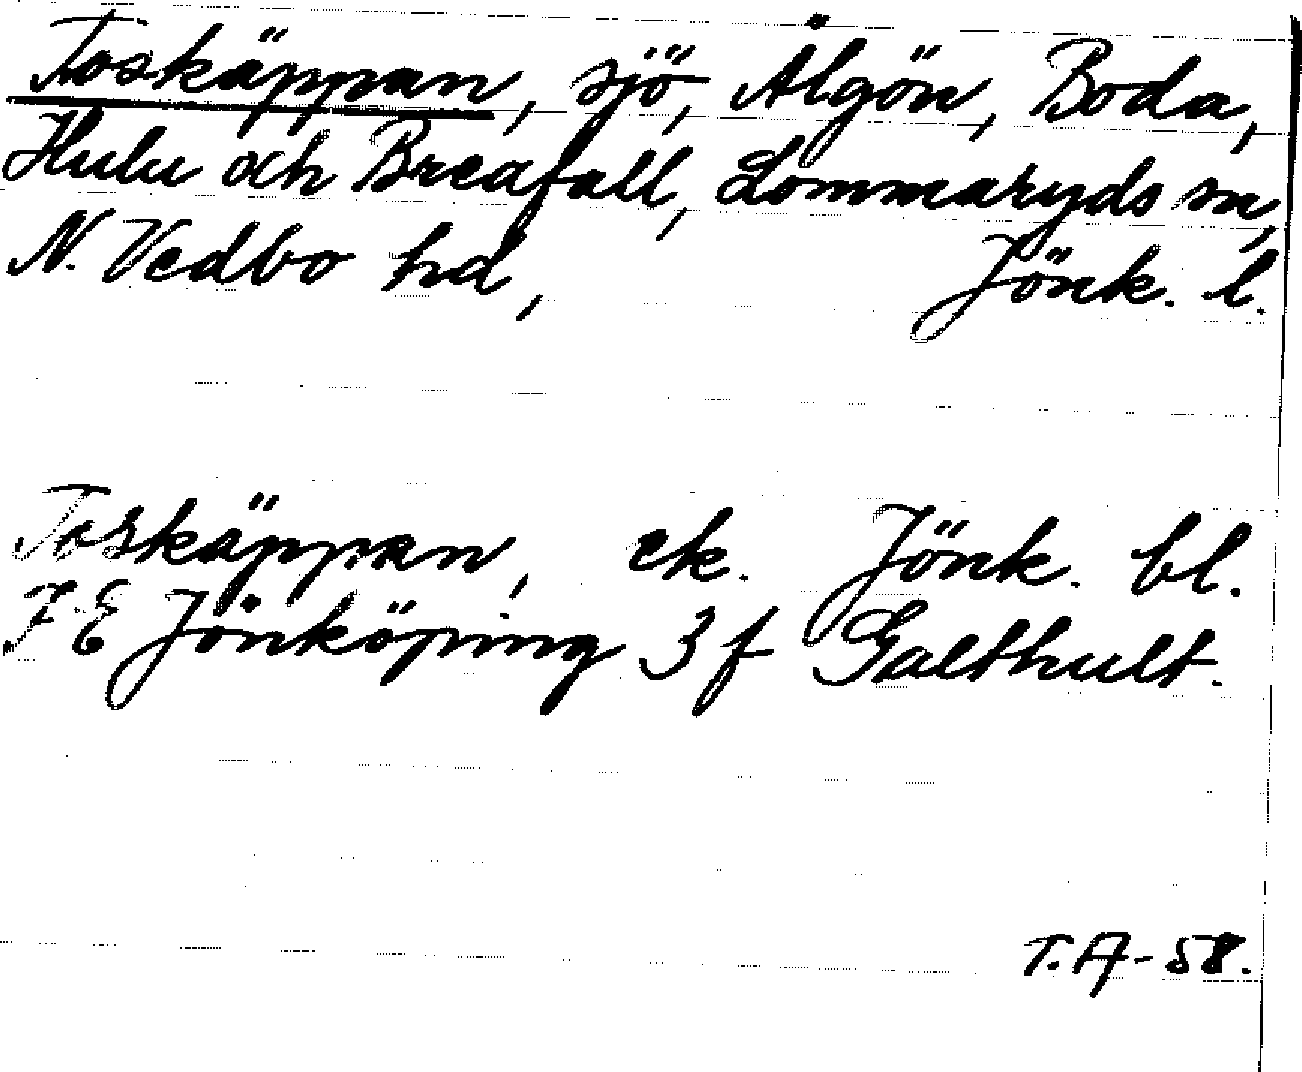 Toskäppan, sjö, Älgön, Boda,
Hulu och Breafall, Lommaryds sn,
N. Vedbo hd, Jönk. l.
Toskäppan, ek. Jönk. bl.
7 E Jönköping 3 f Galthult.
T. A - 58.